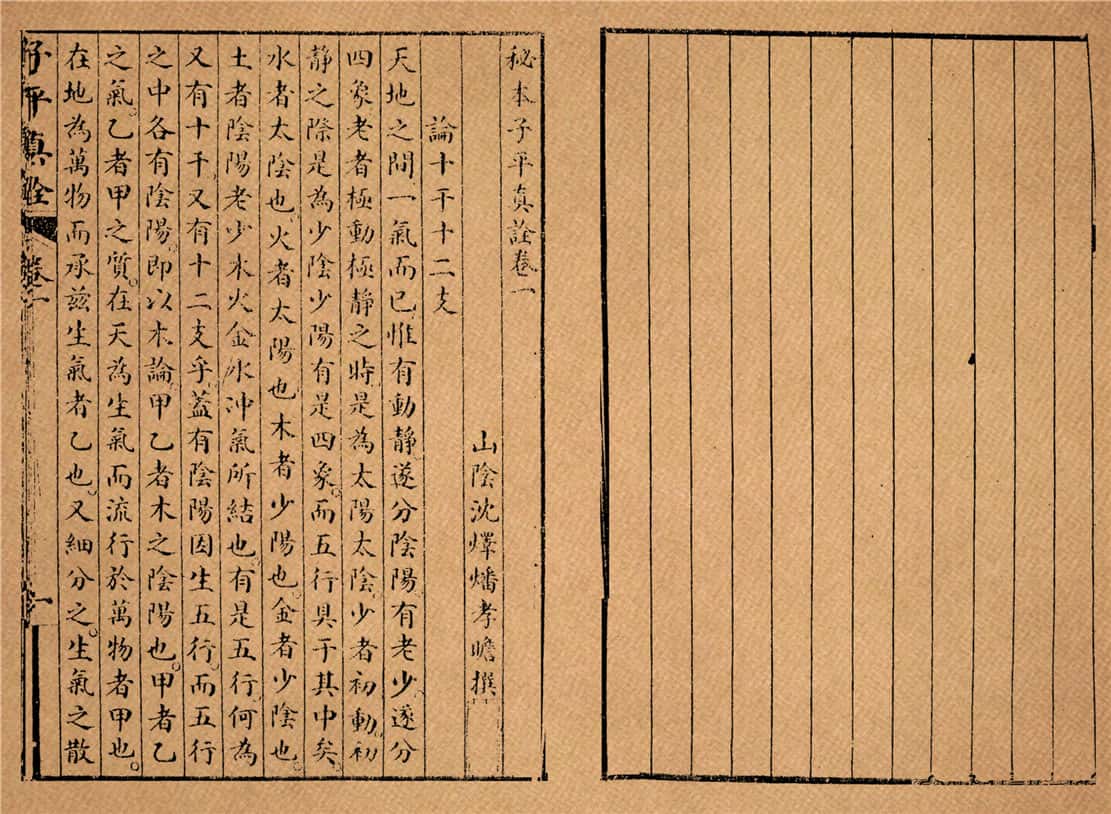 秘本子平真詮卷一
山陰沈燡燔孝瞻撰
論十干十二支
天地之間一氣而已惟有動靜遂分陰陽有老少遂分
四象老者極動極靜之時是為太陽太陰少者初動初
靜之際是為少陰少陽有是四象而五行具于其中矣
水者太陰也火者太陽也木者少陽也金者少陰也
土者陰陽老少木火金水沖氣所結也有是五行何為
又有十干又有十二支乎蓋有陰陽因生五行而五行
之中各有陰陽即以木論甲乙者木之陰陽也甲者乙
之氣乙者甲之質在天為生氣而流行於萬物者甲也
在地為萬物而承茲生氣者乙也又細分之生氣之散
子平真詮 卷一 一